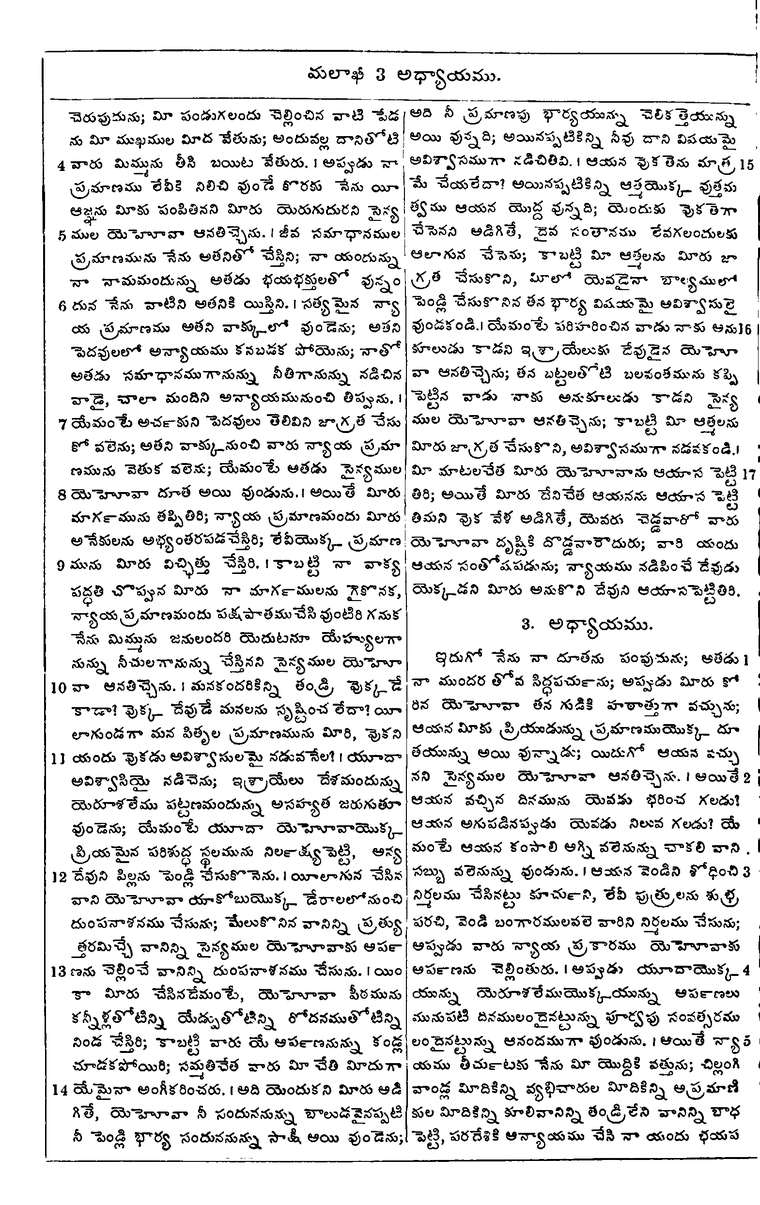 మలాఖీ 3 అధ్యాయము.
చెరుపుదును; మీ పండుగలందు చెల్లించిన వాటి పేడ
ను మీ ముఖముల మీద వేతును; అందువల్ల దానితోటి
4 వారు మిమ్మును తీసి బయిట వేతురు. । అప్పుడు నా
ప్రమాణము లేవీకి నిలిచి వుండే కొరకు నేను యీ
ఆజ్ఞను మీకు పంపితినని మీరు యెరుగుదురని సైన్య
5 ముల యెహోవా ఆనతిచ్చెను. । జీవ సమాధానముల
ప్రమాణమును నేను అతనితో చేస్తిని; నా యందున్ను
నా నామమందున్ను అతడు భయభక్తులతో వున్నం
6 దున నేను వాటిని అతనికి యిస్తిని. । సత్యమైన న్యా
య ప్రమాణము అతని వాక్కులో వుండెను; అతని
పెదవులలో అన్యాయము కనబడక పోయెను; నాతో
అతడు సమాధానముగానున్ను నీతిగానున్ను నడిచిన
వాడై, చాలా మందిని అన్యాయమునుంచి తిప్పును. ।
7 యేమంటే అర్చకుని పెదవులు తెలివిని జాగ్రత చేసు
కో వలెను; అతని వాక్కునుంచి వారు న్యాయ ప్రమా
ణమును వెతుక వలెను; యేమంటే అతడు సైన్యముల
8 యెహోవా దూత అయి వుండును. । అయితే మీరు
మార్గమును తప్పితిరి; న్యాయ ప్రమాణమందు మీరు
అనేకులను అభ్యంతరపడచేస్తిరి; లేవీయొక్క ప్రమాణ
9 మును మీరు విచ్ఛిత్తు చేస్తిరి. । కాబట్టి నా వాక్య
పద్ధతి చొప్పున మీరు నా మార్గములను గైకొనక,
న్యాయ ప్రమాణమందు పక్షపాతముచేసి వుంటిరి గనుక
నేను మిమ్మును జనులందరి యెదుటనూ యేహ్యులగా
నున్ను నీచులగానున్ను చేస్తినని సైన్యముల యెహో
10 వా ఆనతిచ్చెను. । మనకందరికిన్ని తండ్రి వొక్కడే
కాడా? వొక్క దేవుడే మనలను సృష్టించ లేదా? యీ
లాగుండగా మన పితృల ప్రమాణమును మీరి, వొకని
11 యందు వొకడు అవిశ్వాసులమై నడువనేల? । యూదా
అవిశ్వాసియై నడిచెను; ఇశ్రాయేలు దేశమందున్ను
యెరూశలేము పట్టణమందున్ను అసహ్యత జరుగుతూ
వుండెను; యేమంటే యూదా యెహోవాయొక్క
ప్రియమైన పరిశుద్ధ స్థలమును నిర్లక్ష్యపెట్టి, అన్య
12 దేవుని పిల్లను పెండ్లి చేసుకొనెను. । యీలాగున చేసిన
వాని యెహోవా యాకోబుయొక్క డేరాలలోనుంచి
దుంపనాశనము చేసును; మేలుకొనిన వానిన్ని ప్రత్యు
త్తరమిచ్చే వానిన్ని సైన్యముల యెహోవాకు అర్ప
13 ణను చెల్లించే వానిన్ని దుంపనాశనము చేసును. । యిం
కా మీరు చేసినదేమంటే, యెహోవా పీఠమును
కన్నీళ్లతోటిన్ని యేడ్పుతోటిన్ని రోదనముతోటిన్ని
నింద చేస్తిరి; కాబట్టి వారు యే అర్పణనున్ను కండ్ల
చూడకపోయిరి; సమ్మతిచేత వారు మీ చేతి మీదుగా
14 యేమైనా అంగీకరించరు. । అది యెందుకని మీరు అడి
గితే, యెహోవా నీ సందుననున్ను బాలుడవైనప్పటి
నీ పెండ్లి భార్య సందుననున్ను సాక్షి అయి వుండెను;
అది నీ ప్రమాణపు భార్యయున్ను చెలికత్తెయున్ను
అయి వున్నది; అయినప్పటికిన్ని నీవు దాని విషయమై
అవిశ్వాసముగా నడిచితివి. । ఆయన వొకతెను మాత్ర 15
మే చేయలేదా? అయినప్పటికిన్ని ఆత్మయొక్క వుత్తమ
త్వము ఆయన యొద్ద వున్నది; యెందుకు వొకతెగా
చేసెనని అడిగితే, దైవ సంతానము లేవగలందులకు
ఆలాగున చేసెను; కాబట్టి మీ ఆత్మలను మీరు జా
గ్రత చేసుకొని, మీలో యెవడైనా బాల్యములో
పెండ్లి చేసుకొనిన తన భార్య విషయమై అవిశ్వాసులై
వుండకండి. । యేమంటే పరిహరించిన వాడు నాకు అను 16
కూలుడు కాడని ఇశ్రాయేలుకు దేవుడైన యెహో
వా ఆనతిచ్చెను; తన బట్టలతోటి బలవంతమును కప్పి
పెట్టిన వాడు నాకు అనుకూలుడు కాడని సైన్య
ముల యెహోవా ఆనతిచ్చెను; కాబట్టి మీ ఆత్మలను
మీరు జాగ్రత చేసుకొని, అవిశ్వాసముగా నడవకండి. ।
మీ మాటలచేత మీరు యెహోవాను ఆయాస పెట్టి 17
తిరి; అయితే మీరు దేనిచేత ఆయనను ఆయాస పెట్టి
తిమని వొక వేళ అడిగితే, యెవరు చెడ్డవారో వారు
యెహోవా దృష్టికి దొడ్డవారౌదురు; వారి యందు
ఆయన సంతోషపడును; న్యాయము నడిపించే దేవుడు
యెక్కడని మీరు అనుకొని దేవుని ఆయాసపెట్టితిరి.
3. అధ్యాయము.
ఇదుగో నేను నా దూతను పంపుదును; అతడు 1
నా ముందర తోవ సిద్ధపర్చును; అప్పుడు మీరు కో
రిన యెహోవా తన గుడికి హఠాత్తుగా వచ్చును;
ఆయన మీకు ప్రియుడున్ను ప్రమాణముయొక్క దూ
తయున్ను అయి వున్నాడు; యిదుగో ఆయన వచ్చు
నని సైన్యముల యెహోవా ఆనతిచ్చెను. । అయితే 2
ఆయన వచ్చిన దినమును యెవడు భరించ గలడు?
ఆయన అగుపడినప్పుడు యెవడు నిలువ గలడు? యే
మంటే ఆయన కంసాలి అగ్ని వలెనున్ను చాకలి వాని
సబ్బు వలెనున్ను వుండును. । ఆయన వెండిని శోధించి 3
నిర్మలము చేసినట్టు కూర్చుని, లేవీ పుత్రులను శుభ్ర
పరచి, వెండి బంగారమువలె వారిని నిర్మలము చేసును;
అప్పుడు వారు న్యాయ ప్రకారము యెహోవాకు
అర్పణను చెల్లింతురు. । అప్పుడు యూదాయొక్క 4
యున్ను యెరూశలేముయొక్కయున్ను అర్పణలు
మునుపటి దినములందైనట్టున్ను పూర్వపు సంవత్సరము
లందైనట్టున్ను ఆనందముగా వుండును. । అయితే న్యా 5
యము తీర్చుటకు నేను మీ యొద్దికి వత్తును; చిల్లంగి
వాండ్ల మీదికిన్ని వ్యభిచారుల మీదికిన్ని అప్రమాణి
కుల మీదికిన్ని కూలివానిన్ని తండ్రిలేని వానిన్ని బాధ
పెట్టి, పరదేశికి అన్యాయము చేసి నా యందు భయప